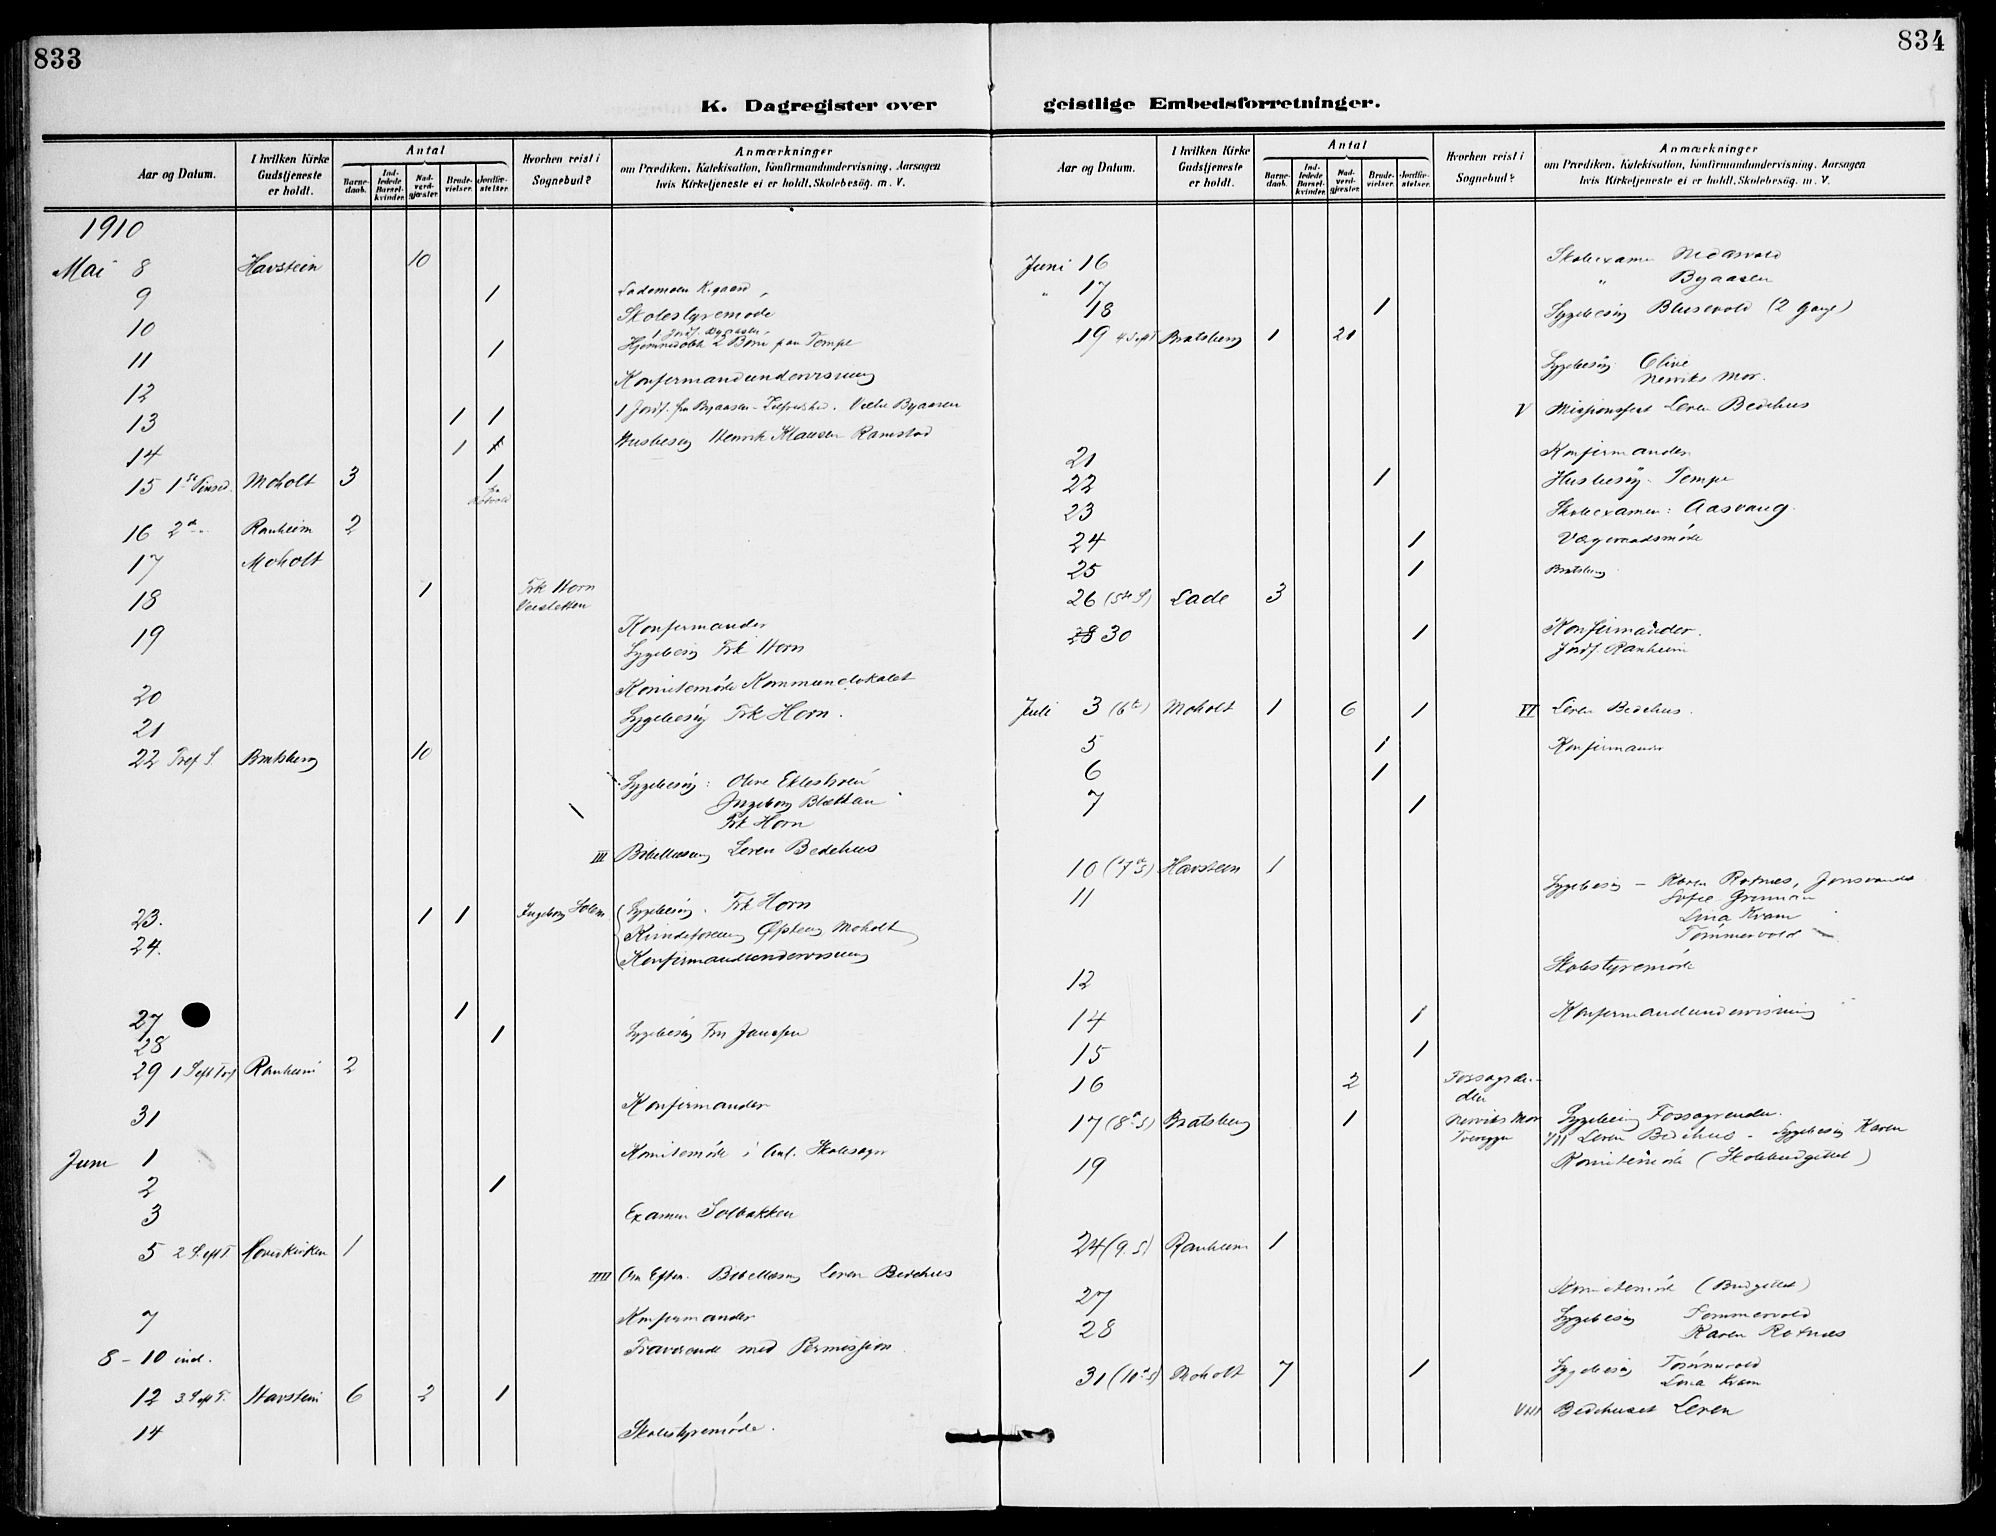 833
K. Dagregister over
Aar og Datum.
I hvilken Kirke Gudstjeneste er holdt.
Antal
Barnedaab.
Indledede Barselkvinder.
Nadverdgjæster.
Brudevielser.
Jordfæstelser.
Hvorhen reist i Sognebud?
Anmærkninger
om Prædiken, Katekisation, Konfirmandundervisning, Aarsagen
hvis Kirketjeneste ei er holdt, Skolebesøg, m. V.
1910
Mai 8 Havstein 10
9 1 Lademoen K.gaard
10 Skolestyremøde
11 1 Hjemmedøbt 2 Børn paa Tempe
12 Konfirmandundervisning
13 1 1 1 Jordf. fra Byaasen Byaasen
14 1 1 Husbesøg Henrik Klausen Ramstad
15 1ste Pinsed. Moholt 3 1
fra Rotvold
16 2d " Ranheim 2
17 Moholt
18 1 Frk Horn
19 Konfirmander
Sygebesøg Frk Horn
20 Komitemøde Kommunelokalet
21 Sygebesøg Frk Horn.
22 Tref S. Bratsberg 10
Sygebesøg: Olive
Ingeborg Blekkan
Frk Horn
III Bibellæsning Leren Bedehus
23. 1 1 Ingeborg Solem Sygebesøg. Frk Horn
24. Kvindeforening Moholt
Konfirmandundervisning
27 1
28 1 Sygebesøg Fru
29 1 S eft Tref Ranheim 2
31 Konfirmander
Juni 1 Komitemøde i Anl. Skolesager
2 1
3 Examen Solbakken
5 2 S. eft T. Hovedkirken 1
IIII Om Efterm. Bibellæsning Leren Bedehus
7 Konfirmander
8 - 10 incl. Fraværende med Permission
12 3 S eft T. Havstein 6 2 1
14 Skolestyremøde.
834
geistlige Embedsforretninger.
Aar og Datum.
I hvilken Kirke Gudstjeneste er holdt.
Antal
Barnedaab.
Indledede Barselkvinder.
Nadverdgjæster.
Brudevielser.
Jordfæstelser.
Hvorhen reist i Sognebud?
Anmærkninger
om Prædiken, Katekisation, Konfirmandundervisning, Aarsagen
hvis Kirketjeneste ei er holdt, Skolebesøg, m. V.
Juni 16 Skoleexamen
" 17 " Byaasen
18 1 Sygebesøg Blusevold (2 Gange)
19 4 S eft T Bratsberg 1 21
Sygebesøg Olive
Henriks Mor.
V Missionsfest Leren Bedehus
21 Konfirmander
22 1 Husbesøg - Tempe
23 Skoleexamen: Aasvang.
24 1 Værgeraadsmøde
25 1 Bratsberg
26 (5te S) Lade 3
28 30 1 Konfirmander.
Jordf. Ranheim
Juli 3 (6te) Moholt 1 6 1 VI Leren Bedehus.
5 1 Konfirmander
6 1
7 1
10 (7de S) Havstein 1
11 Sygebesøg - Karen Rotnes, Jonsvandet
Sofie
Lina Kvam
Tømmervold
12 Skolestyremøde
14 1 Konfirmandundervisning
15 1
16 2 Fossegrenden
17 (8de S) Bratsberg 1 Henriks Mor Sygebesøg Fossegrenden.
VII Leren Bedehus - Sygebesøg Karen
19 Komitemøde (Skolebudgettet)
24 (9. S) Ranheim 1
27 Komitemøde (Budgettet)
28 Sygebesøg Tømmervold
Karen Rotnes
31 (10de S) Moholt 7 1 Sygebesøg Tømmervold
Lina Kvam
VIII Bedehuset Leren